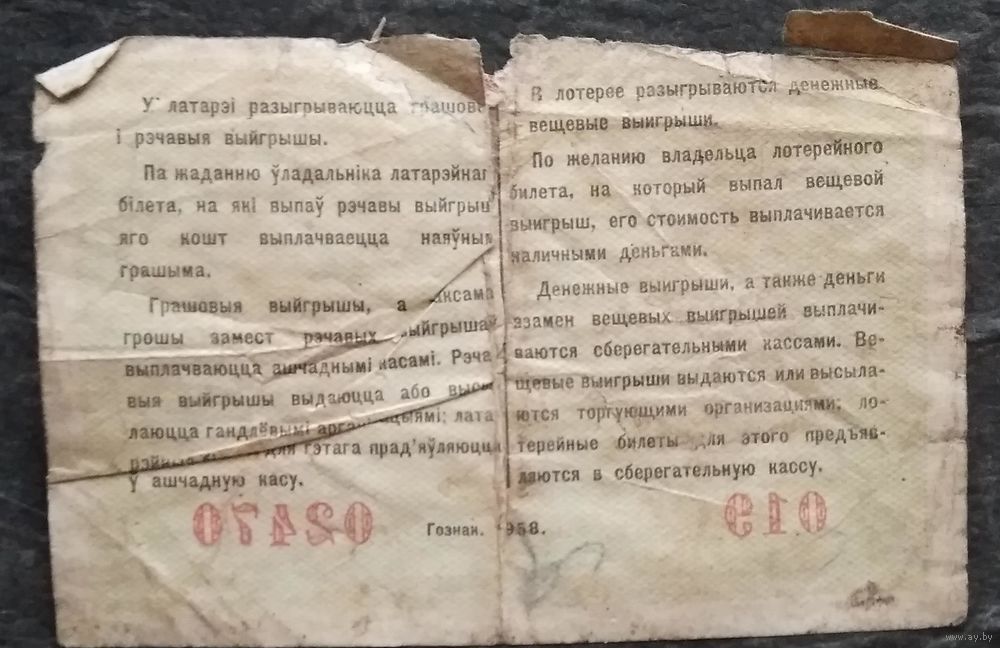 У латарэі разыгрываюцца грашовы
і рэчавыя выйгрышы.
Па жаданню ўладальніка латарэйнаг
білета, на які выпаў рэчавы выйгрыш
яго кошт выплачваецца наяўным
грашыма.
Грашовыя выйгрышы, а аксама
грошы замест рэчавых выйгрышаў
выплачваюцца ашчаднымі касамі. Рэча
выя выйгрышы выдаюцца або высы
лаюцца гандлёвымі арганізацыямі; лата
рэйныя для гэтага прад'яўляюцца
ў ашчадную касу.
В лотерее разыгрываются денежные
вещевые выигрыши.
По желанию владельца лотерейного
билета, на который выпал вещевой
выигрыш, его стоимость выплачивается
наличными деньгами.
Денежные выигрыши, а также деньги
взамен вещевых выигрышей выплачи-
ваются сберегательными кассами. Ве-
щевые выигрыши выдаются или высыла-
ются торгующими организациями; ло-
терейные билеты для этого предъяв-
ляются в сберегательную кассу.
02470
Гознак. 1958.
019
www.ay.by